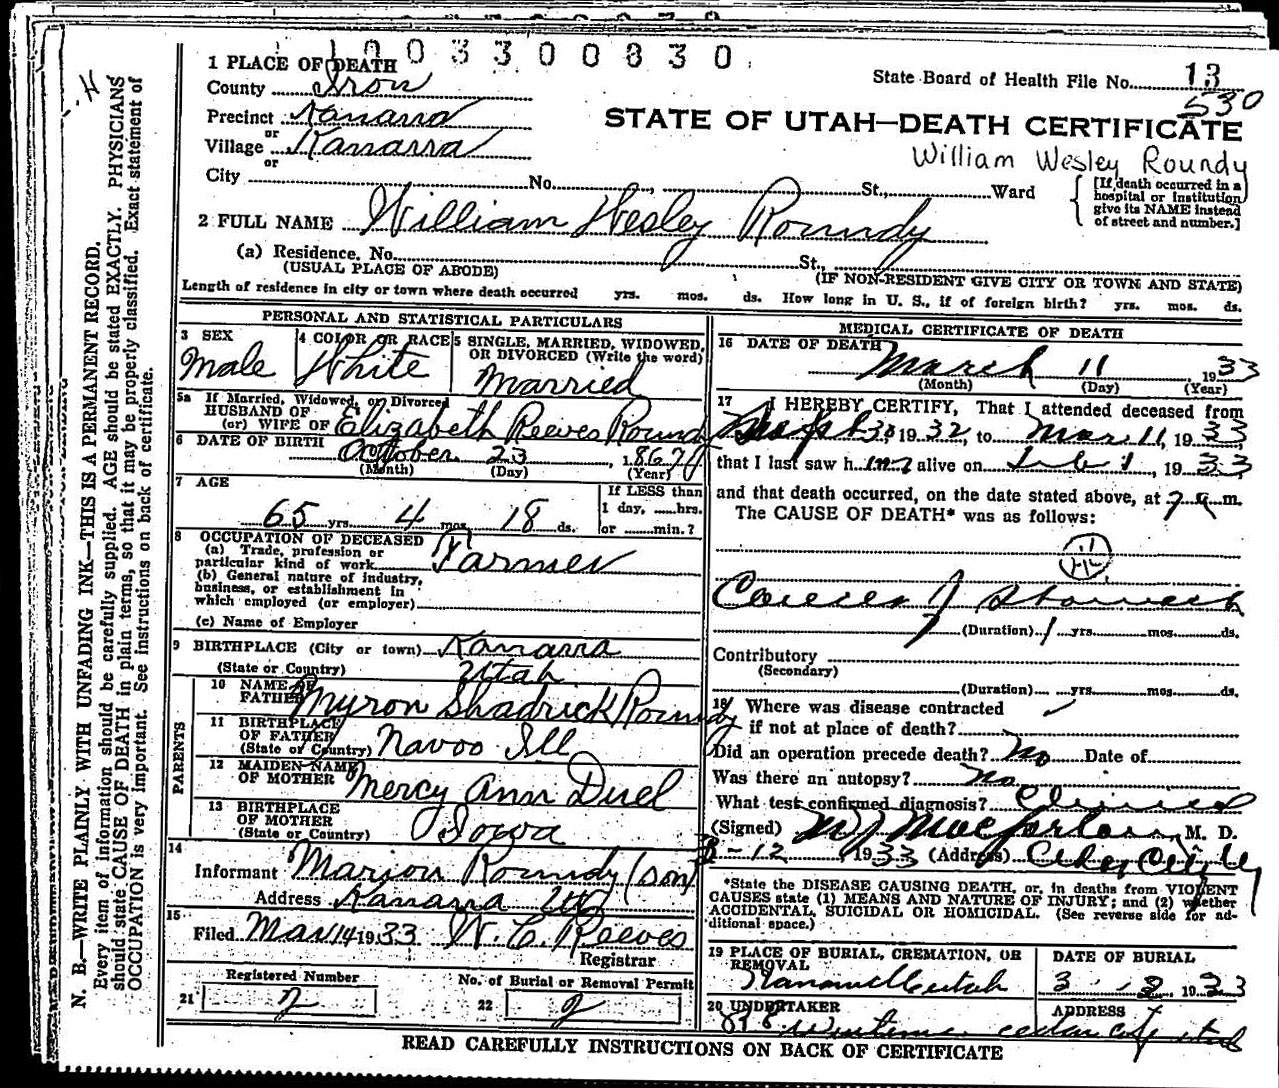 1 0 0 3 3 0 0 8 3 0
1 PLACE OF DEATH
County Iron
State Board of Health File No. 13
530
Precinct Kanarra
or
Village Kanarra
or
STATE OF UTAH—DEATH CERTIFICATE
William Wesley Roundy
City No. , St., Ward
[If death occurred in a hospital or institution give its NAME instead of street and number.]
2 FULL NAME William Wesley Roundy
(a) Residence. No. St.,
(USUAL PLACE OF ABODE) (IF NON-RESIDENT GIVE CITY OR TOWN AND STATE)
Length of residence in city or town where death occurred yrs. mos. ds. How long in U. S., if of foreign birth? yrs. mos. ds.
PERSONAL AND STATISTICAL PARTICULARS
3 SEX
Male
4 COLOR OR RACE
White
5 SINGLE, MARRIED, WIDOWED, OR DIVORCED (Write the word)
Married
5a If Married, Widowed, or Divorced
HUSBAND OF
(or) WIFE OF Elizabeth Reeves Roundy
6 DATE OF BIRTH
October 23, 1867
(Month) (Day) (Year)
7 AGE
65 yrs. 4 mos. 18 ds.
If LESS than
1 day, hrs.
or min.?
8 OCCUPATION OF DECEASED
(a) Trade, profession or
particular kind of work Farmer
(b) General nature of industry,
business, or establishment in
which employed (or employer)
(c) Name of Employer
9 BIRTHPLACE (City or town) Kanarra
(State or Country) Utah
PARENTS
10 NAME OF
FATHER Myron Shadrick Roundy
11 BIRTHPLACE
OF FATHER
(State or Country) Navoo Ill
12 MAIDEN NAME
OF MOTHER Mercy Ann Duel
13 BIRTHPLACE
OF MOTHER
(State or Country) Iowa
14
Informant Marion Roundy (son)
Address Kanarra Ut
15
Filed Mar 14 1933 W. C. Reeves
Registrar
Registered Number
21 2
No. of Burial or Removal Permit
22 2
MEDICAL CERTIFICATE OF DEATH
16 DATE OF DEATH
March 11, 1933
(Month) (Day) (Year)
17 I HEREBY CERTIFY, That I attended deceased from
30 1932, to Mar 11, 1933
that I last saw him alive on 1, 1933
and that death occurred, on the date stated above, at 7 a m.
The CAUSE OF DEATH* was as follows:
Cancer of Stomach
(Duration) 1 yrs. mos. ds.
Contributory
(Secondary)
(Duration) yrs. mos. ds.
18 Where was disease contracted
if not at place of death?
Did an operation precede death? No Date of
Was there an autopsy? No
What test confirmed diagnosis? Clinical
(Signed) M J Macfarlane, M. D.
3-12, 1933 (Address) Cedar City
*State the DISEASE CAUSING DEATH, or, in deaths from VIOLENT
CAUSES state (1) MEANS AND NATURE OF INJURY; and (2) whether
ACCIDENTAL, SUICIDAL OR HOMICIDAL. (See reverse side for ad-
ditional space.)
19 PLACE OF BURIAL, CREMATION, OR
REMOVAL
utah
DATE OF BURIAL
3 1933
20 UNDERTAKER
ADDRESS
cedar city utah
READ CAREFULLY INSTRUCTIONS ON BACK OF CERTIFICATE
N. B.—WRITE PLAINLY WITH UNFADING INK—THIS IS A PERMANENT RECORD.
Every item of information should be carefully supplied. AGE should be stated EXACTLY. PHYSICIANS
should state CAUSE OF DEATH in plain terms, so that it may be properly classified. Exact statement of
OCCUPATION is very important. See instructions on back of certificate.